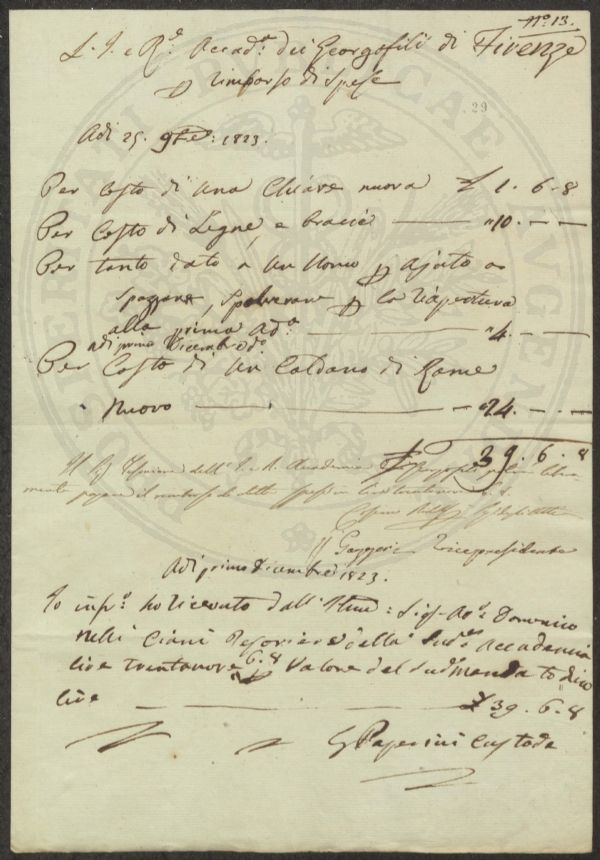 N.º 13.
L. I. e R.e Accad.a dei Georgofili di Firenze
p rimborso di Spese
29
Adi 25. 9bre: 1823.
Per Costo di una Chiave nuova £ 1. 6. 8
Per Costo di Legne, e bracie — "10. — —
Per tanto dato a un Uomo p ajuto a
Spazzare, Spolverare p la riapertura
alla prima Ad.a — "4. — —
adi primo Dicembre do
Per Costo di un Caldano di Rame
Nuovo — "24. — —
£ 39. 6. 8
Il Tesoriere dell' I. e R. Accademia
pagare il rimborso di dette spese in lire trentanove 6. 8.
G Gazzeri Vicepresidente
Adi primo Dicembre 1823.
Io infr.o ho ricevuto dall' Illmo: Sig.r Domenico
nelli Ciani Tesoriere della Sud.a Accademia
lire trentanove 6. 8 p Valore del Sud.o Mandato dico
lire — £ 39. 6. 8
G Paperini Custode